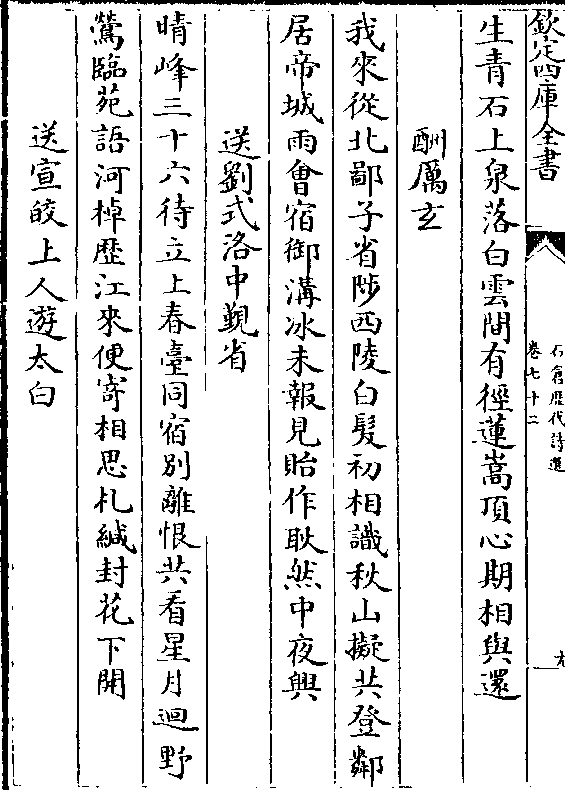 欽定四庫全書
石倉歷代詩選
卷七十二
生青石上泉落白雲間有徑蓮嵩頂心期相與還
酬厲玄
我來從北鄙子省陟西陵白髮初相識秋山擬共登鄰
居帝城雨會宿御溝冰未報見貽作耿然中夜興
送劉式洛中覲省
晴峰三十六待立上春臺同宿別離恨共看星月迴野
鶯臨苑語河棹歷江來便寄相思札緘封花下開
送宣皎上人遊太白